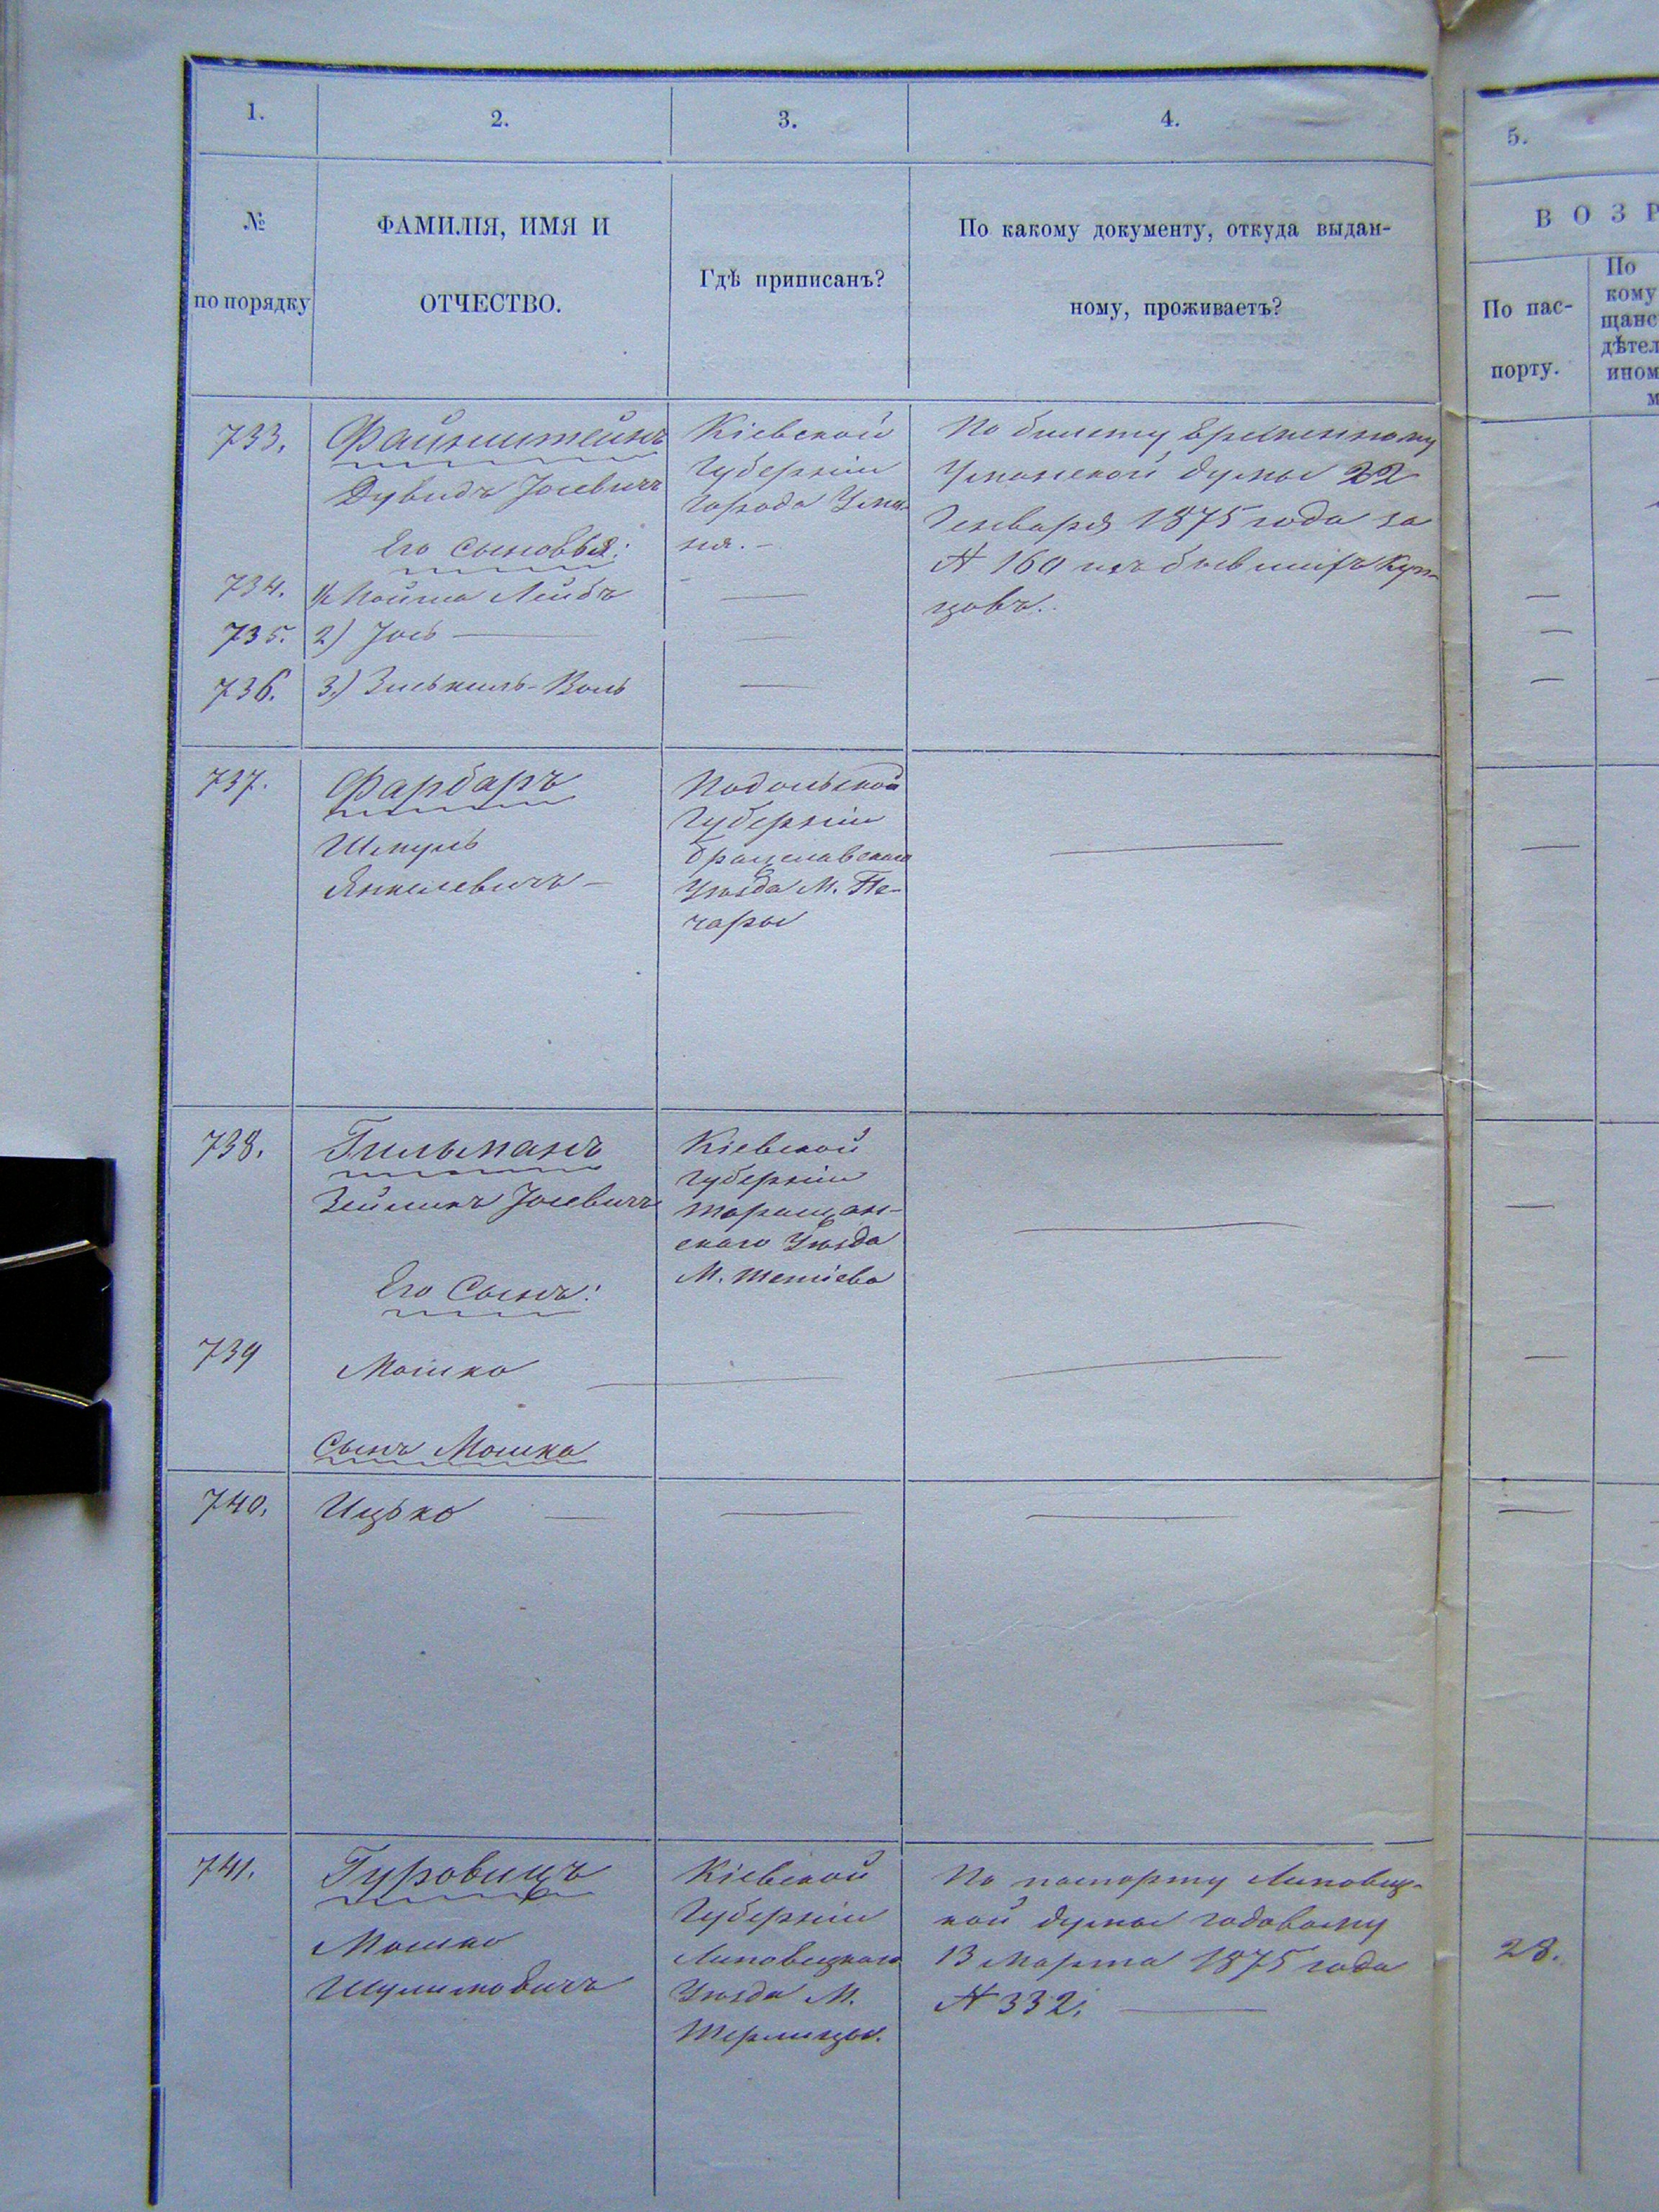 1.
2.
3.
4.
5.
№
по порядку
ФАМИЛІЯ, ИМЯ И
ОТЧЕСТВО.
Гдѣ приписанъ?
По какому документу, откуда выдан-
ному, проживаетъ?
ВОЗР
По пас-
порту.
По
кому
щанс
дѣтел
ином
м
733.
Файнштейнъ
Дувидъ Іосевичъ
Его сыновья:
Кіевской
Губерніи
Города Ума-
ня. -
По билету временному
Уманской думы 22
Генваря 1875 года за
№ 160 изъ бывшихъ куп-
цовъ.
734.
1/ Лейбъ
735.
2) Іось
736.
3.)
737.
Фарбаръ
Шмуль
Янкелевичъ -
Подольской
Губерніи
Брацлавскаго
Уѣзда М. Пе-
чары
738.
Гильманъ
Зейликъ Іосевичъ
Его Сынъ:
Кіевской
Губерніи
Таращан-
скаго Уѣзда
М. Тетіева
739
Мошко
Сынъ Мошка
740.
Ицько
741.
Гуровицъ
Мошко
Шулимовичъ
Кіевской
Губерніи
Липовецкаго
Уѣзда М.
Терлицы.
По паспорту Липовец-
кой думы годовому
13 Марта 1875 года
№ 332.
28.